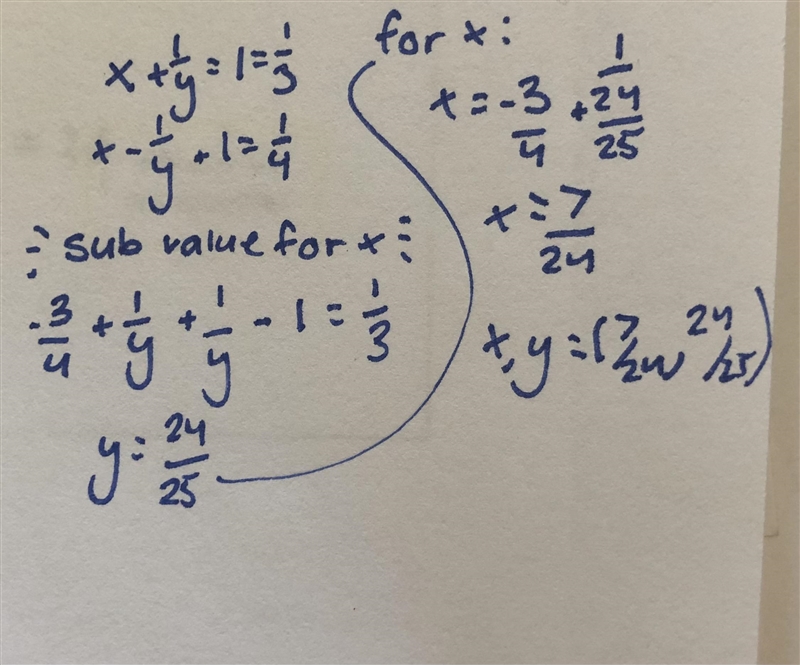 x + 1/y = 1 = 1/3
x - 1/y + 1 = 1/4
∴ sub value for x:
-3/4 + 1/y + 1/y - 1 = 1/3
y = 24/25
for x:
x = -3/4 + 1/(24/25)
x = 7/24
x, y = (7/24, 24/25)